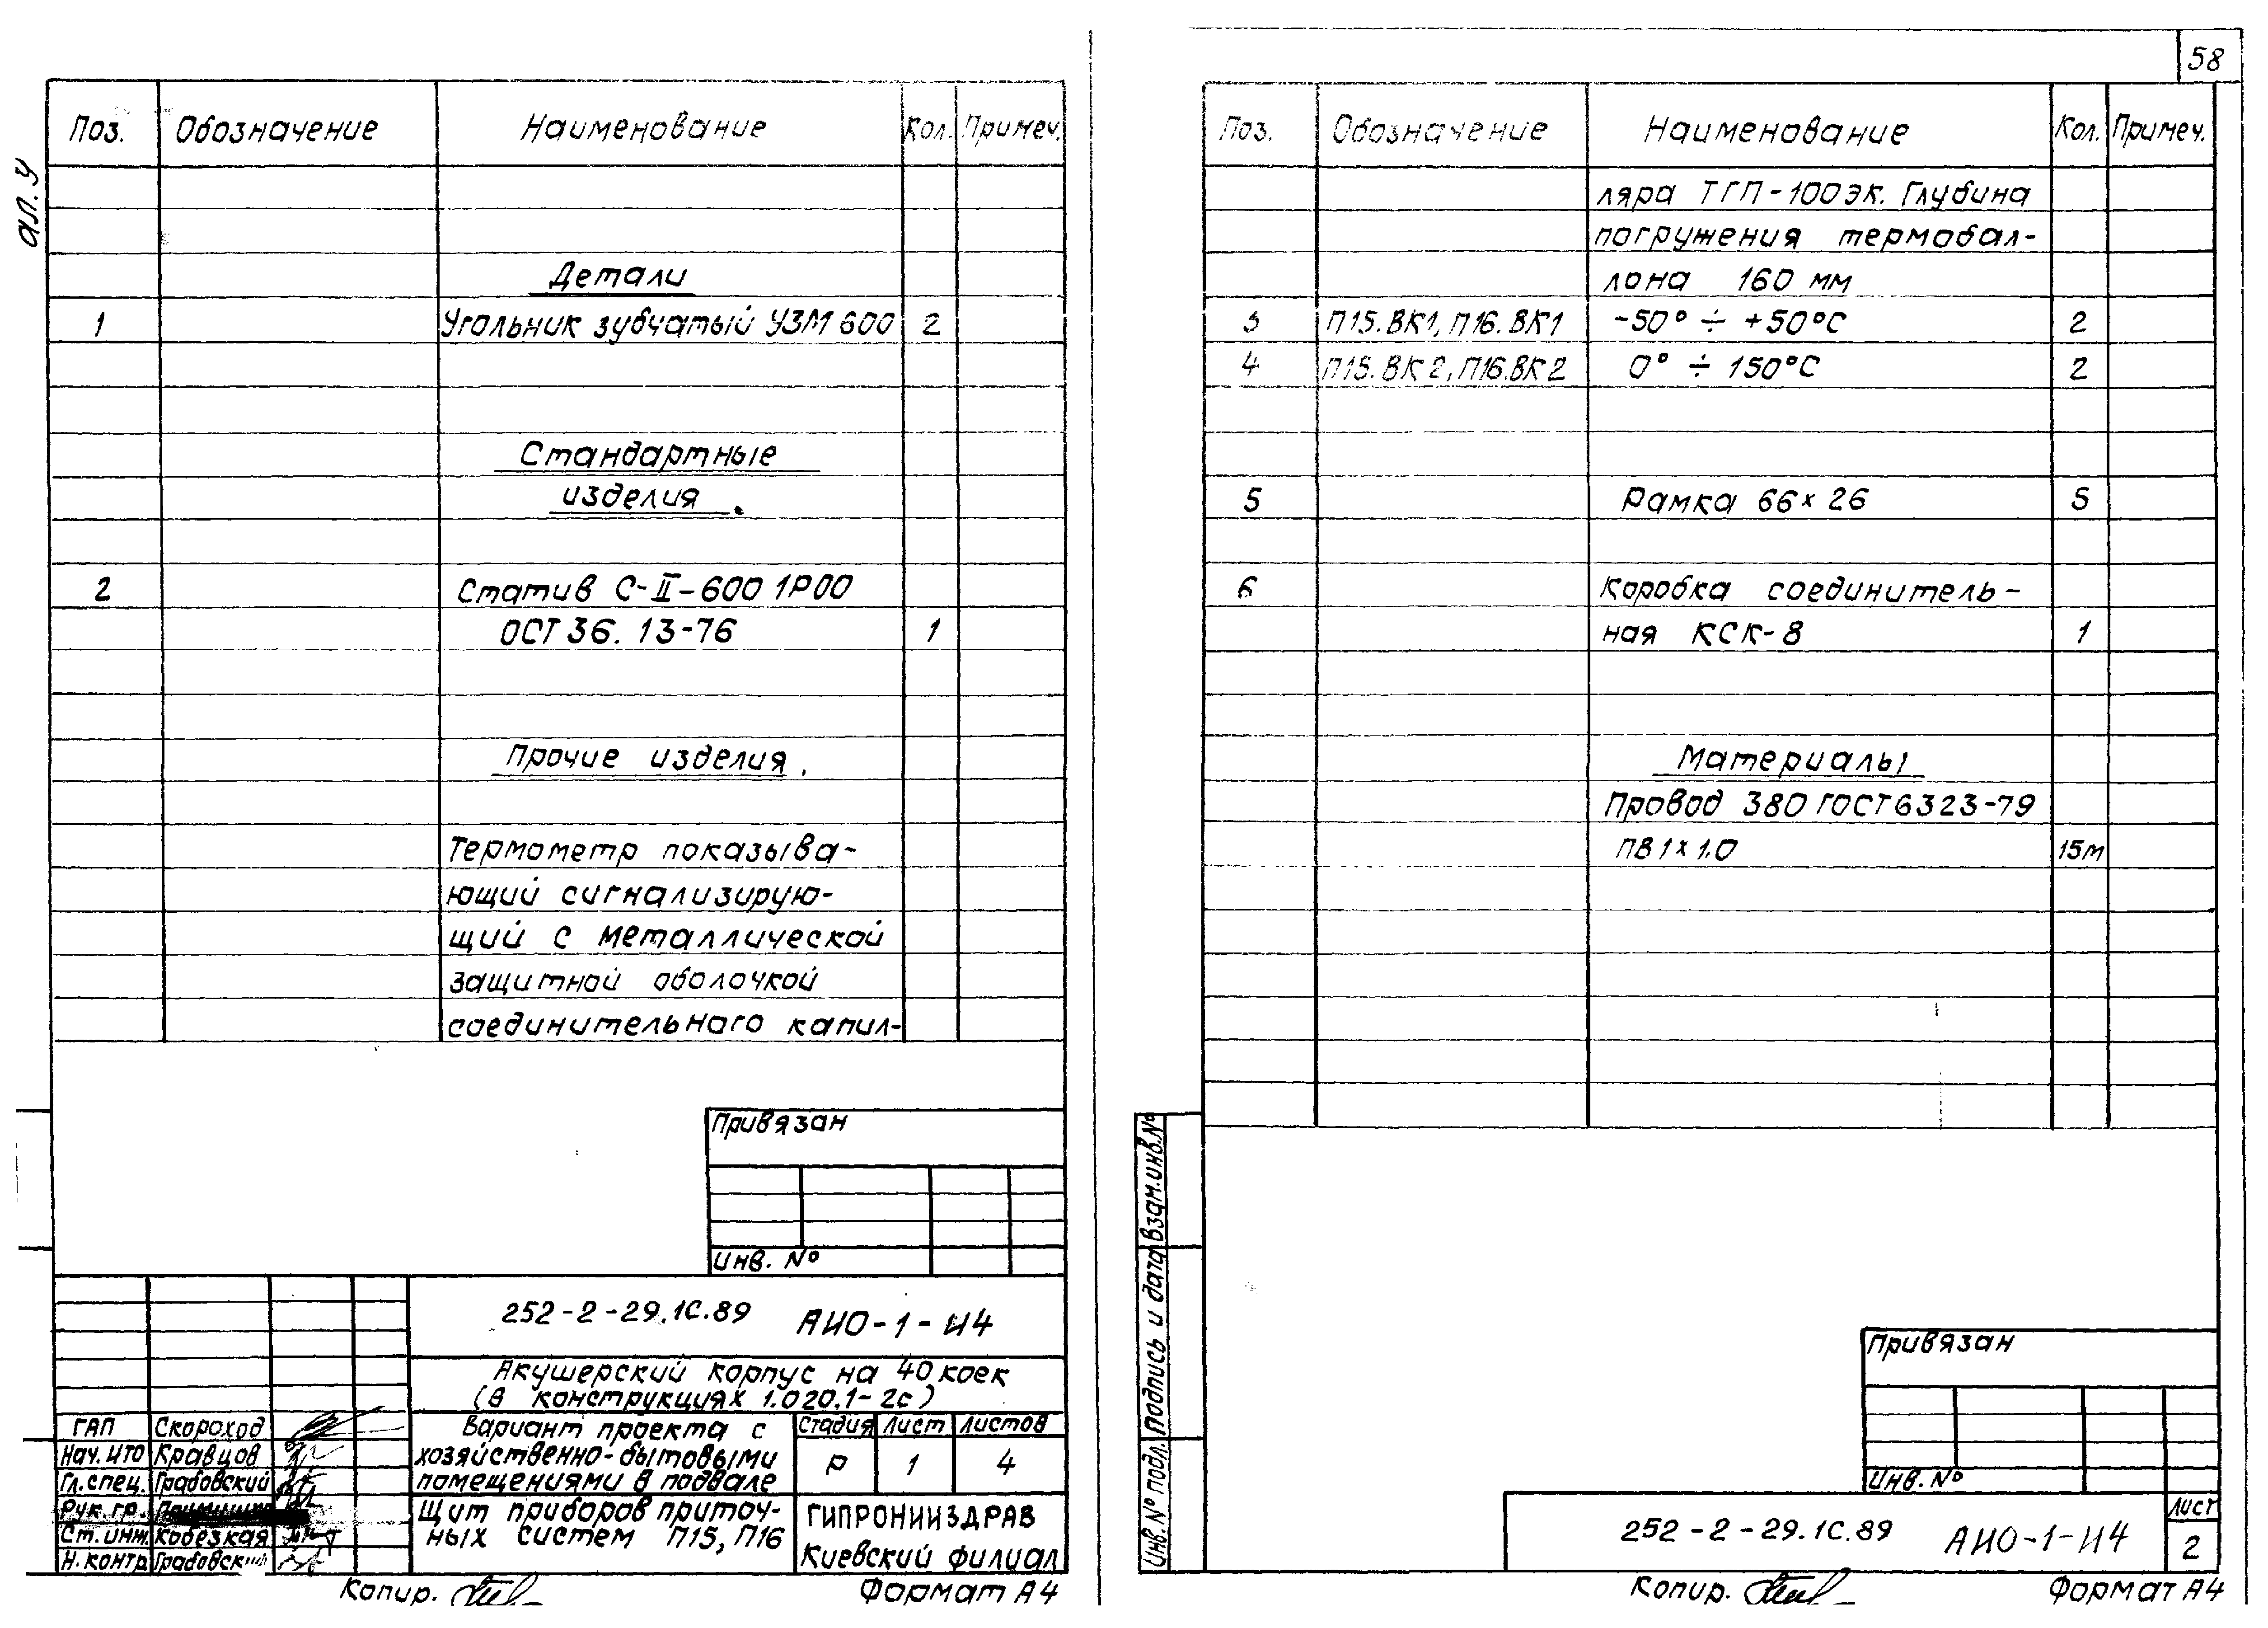 ал. У
Поз. Обозначение Наименование Кол. Примеч.
Детали
1 Угольник зубчатый УЗМ 600 2
Стандартные
изделия.
2 Статив С-II-600 1Р00
ОСТ 36. 13-76 1
Прочие изделия.
Термометр показыва-
ющий сигнализирую-
щий с металлической
защитной оболочкой
соединительного капил-
Привязан
Инв. №
252-2-29.1С.89 АИО-1-И4
Акушерский корпус на 40 коек
(в конструкциях 1.020.1-2с)
ГАП Скороход
Нач. ИТО Кравцов
Гл. спец. Грабовский
Рук. гр.
Ст. инж. Кобезкая
Н. контр. Грабовский
Вариант проекта с
хозяйственно-бытовыми
помещениями в подвале
Стадия Лист Листов
Р 1 4
Щит приборов приточ-
ных систем П15, П16
ГИПРОНИИЗДРАВ
Киевский филиал
Копир.
Формат А4
58
Поз. Обозначение Наименование Кол. Примеч.
ляра ТГП-100эк. Глубина
погружения термобал-
лона 160 мм
3 П15.ВК1, П16.ВК1 -50° ÷ +50°С 2
4 П15.ВК2, П16.ВК2 0° ÷ 150°С 2
5 Рамка 66×26 5
6 Коробка соединитель-
ная КСК-8 1
Материалы
Провод 380 ГОСТ 6323-79
ПВ 1×1.0 15м
Взам. инв. №
Подпись и дата
Инв. № подл.
Привязан
Инв. №
252-2-29.1С.89 АИО-1-И4
Лист
2
Копир.
Формат А4